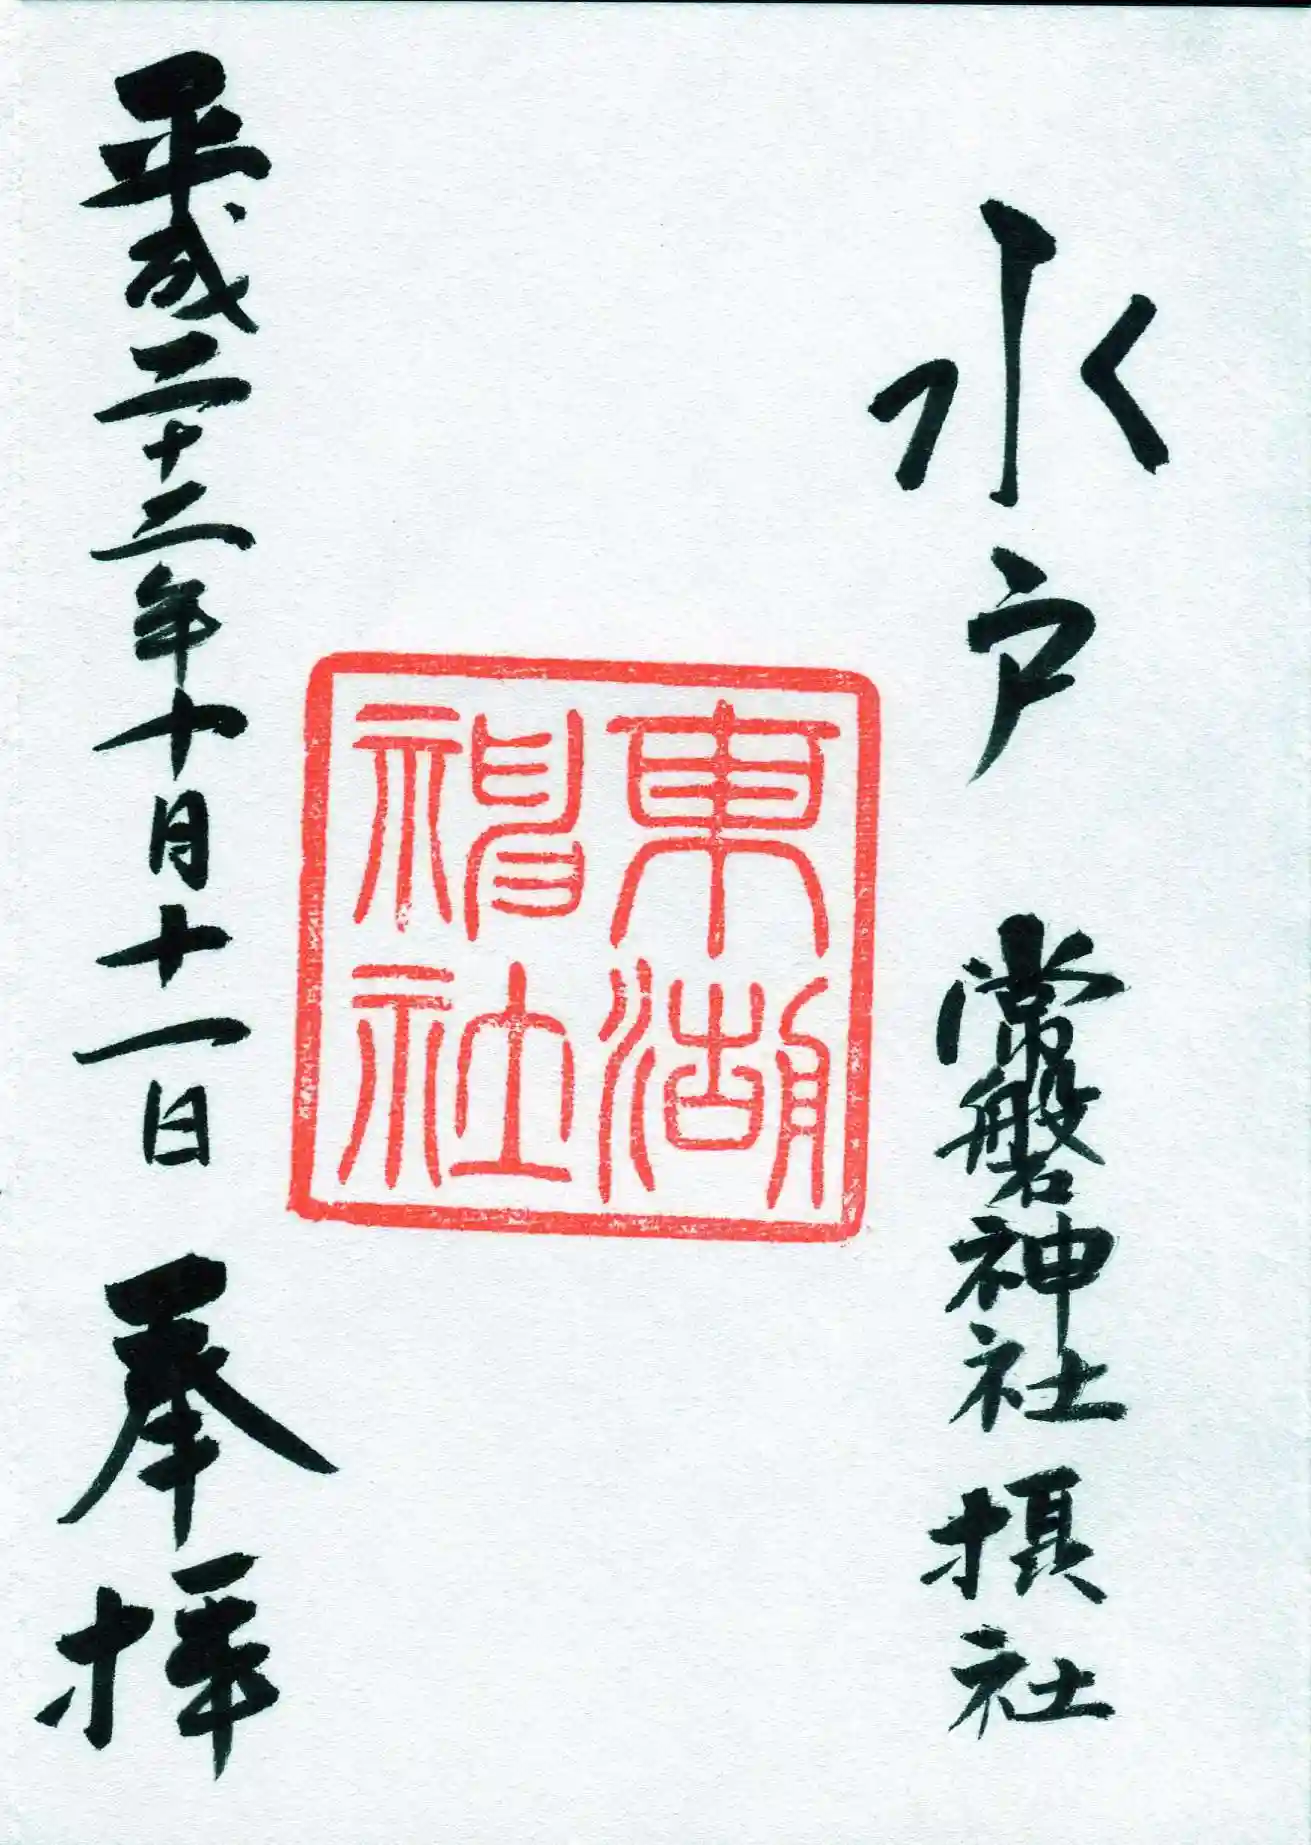 水戸 常磐神社 摂社
東湖
神社
平成二十二年十月十一日 奉拝